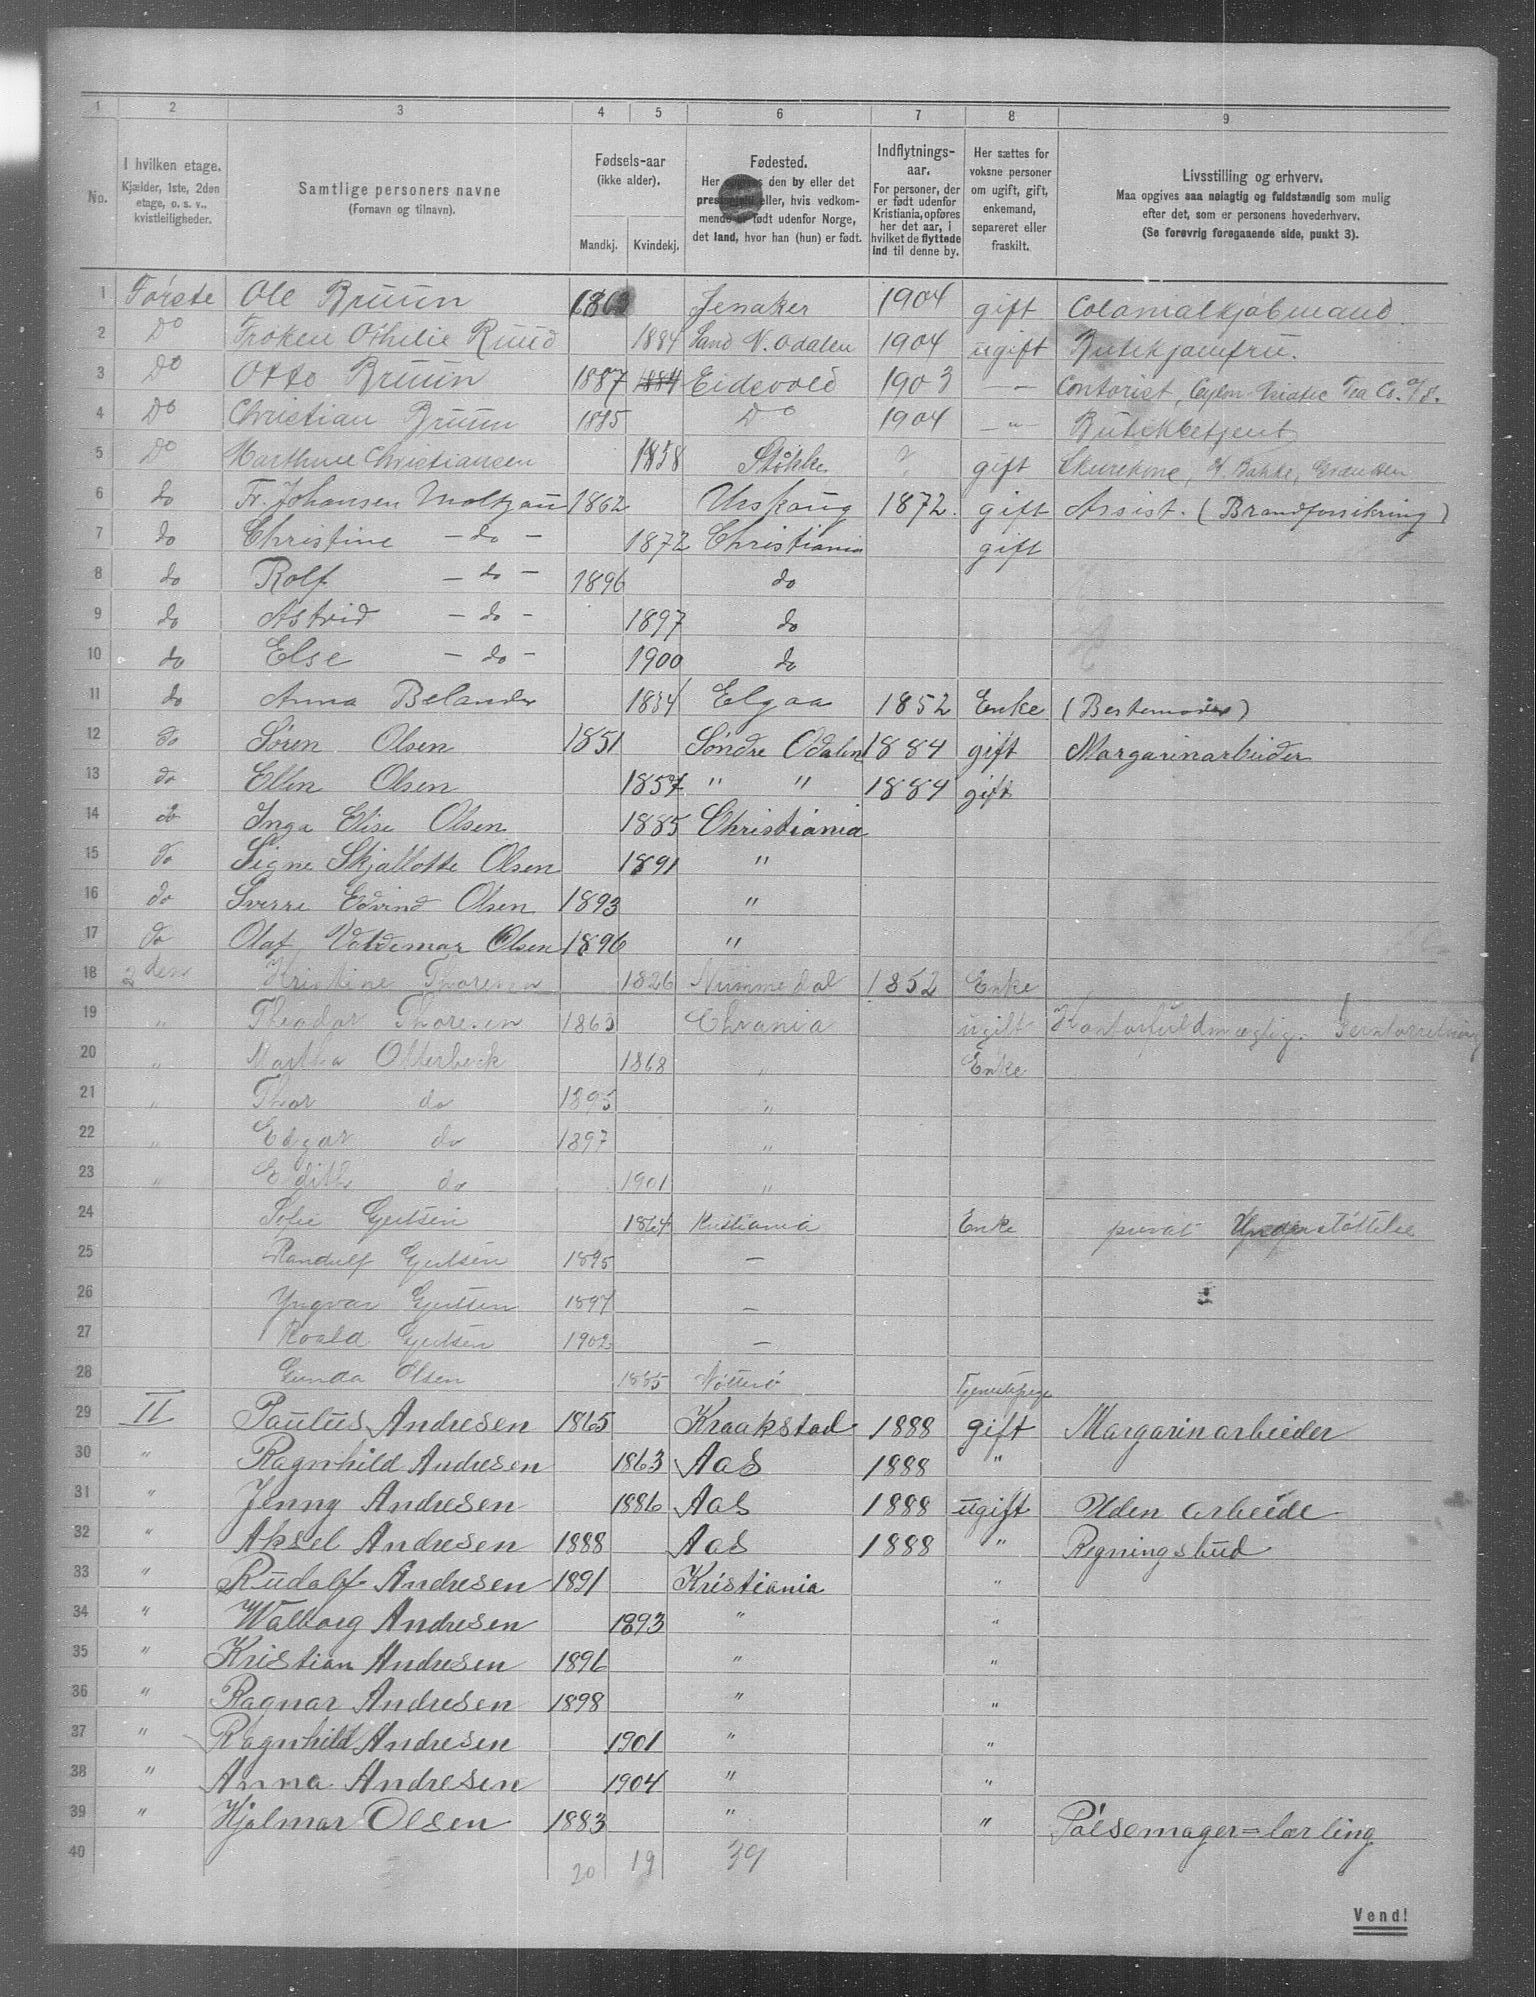 1 2 3 4 5 6 7 8 9
No. I hvilken etage. Kjælder, 1ste, 2den etage, o. s. v., kvistleiligheder. Samtlige personers navne (Fornavn og tilnavn). Fødsels-aar (ikke alder). Mandkj. Kvindekj. Fødested. Her opgives den by eller det præstegjeld eller, hvis vedkommende er født udenfor Norge, det land, hvor han (hun) er født. Indflytnings-aar. For personer, der er født udenfor Kristiania, opføres her det aar, i hvilket de flyttede ind til denne by. Her sættes for voksne personer om ugift, gift, enkemand, separeret eller fraskilt. Livsstilling og erhverv. Maa opgives saa nøiagtig og fuldstændig som mulig efter det, som er personens hovederhverv. (Se forøvrig foregaaende side, punkt 3).
1 Første Ole Bruun 1863 Jenaker 1904 gift Colonialkjøbmand.
2 Do Frøken Othilie Ruud 1884 Sand N. Odalen 1904 ugift Butikjomfru.
3 Do Otto Bruun 1887 1884 Eidsvold 1903 — Contorist, Ceylon Tea Co. A/S.
4 Do Christian Bruun 1885 Do 1904 — " — Butikbetjent
5 Do Marthine Christiansen 1858 Støkke ? gift Skurekone,
6 do Fr. Johansen Moltzau 1862 Urskoug 1872. gift Assist. (Brandforsikring)
7 do Christine — do — 1872 Christiania gift
8 do Rolf — do — 1896 do
9 do Astrid — do — 1897 do
10 do Else — do — 1900 do
11 do Anna Belander 1834 Elgaa 1852 Enke (Bestemoder)
12 do Søren Olsen 1851 Søndre Odalen 1884 gift Margarinarbeider
13 do Ellen Olsen 1857 " " 1884 gift
14 do Inga Elise Olsen 1885 Christiania
15 do Signe Skjallotte Olsen 1891 "
16 do Sverre Edvind Olsen 1893 "
17 do Olaf Valdemar Olsen 1896 "
18 2den Kristine Thoresen 1826 Nummedal 1852 Enke
19 " Theodor Thoresen 1863 Chrania ugift Kontorfuldmægtig. Jernforretning
20 " Martha Otterbeck 1868 " Enke
21 " Thor do 1895 "
22 " Edgar do 1897 "
23 " Edith do 1901 "
24 Sofie Gjertsen 1864 Kristiania Enke privat Understøttelse
25 Randulf Gjertsen 1895 —
26 Yngvar Gjertsen 1897 —
27 Roald Gjertsen 1902 —
28 Gunda Olsen 1885 Nøtterø Tjenestepige
29 II Paulus Andresen 1865 Kraakstad 1888 gift Margarinarbeider
30 " Ragnhild Andresen 1863 Aas 1888 "
31 " Jenny Andresen 1886 Aas 1888 ugift Uden arbeide
32 " Aksel Andresen 1888 Aas 1888 " Regningsbud
33 " Rudolf Andresen 1891 Kristiania "
34 " Walborg Andresen 1893 " "
35 " Kristian Andresen 1896 " "
36 " Ragnar Andresen 1898 " "
37 " Ragnhild Andresen 1901 " "
38 " Anna Andresen 1904 " "
39 " Hjalmar Olsen 1883 " " Pølsemager=lærling
40 20 19 39
Vend!